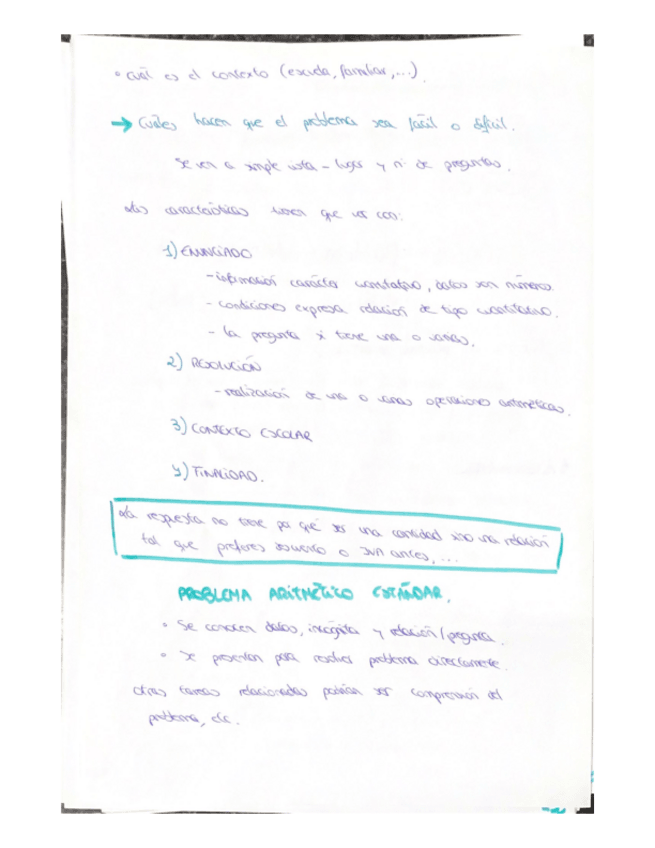 • Cuál es el contexto (escuela, familiar,...).
→ Cuáles hacen que el problema sea fácil o difícil.
Se ven a simple vista - lugar y nº de preguntas.
Las características tienen que ver con:
1) ENUNCIADO
- información carácter cuantitativo, datos son números.
- condiciones expresa relación de tipo cuantitativo.
- La pregunta si tiene una o varias.
2) RESOLUCIÓN
- realización de una o varias operaciones aritméticas.
3) CONTEXTO ESCOLAR
4) FINALIDAD.
La respuesta no tiene por qué ser una cantidad sino una relación
tal que prefieres o
PROBLEMA ARITMÉTICO ESTÁNDAR.
• Se conocen datos, incógnita y relación/pregunta.
• Se presentan para resolver problema directamente.
Otras tareas relacionadas podrían ser comprensión del
problema, etc.